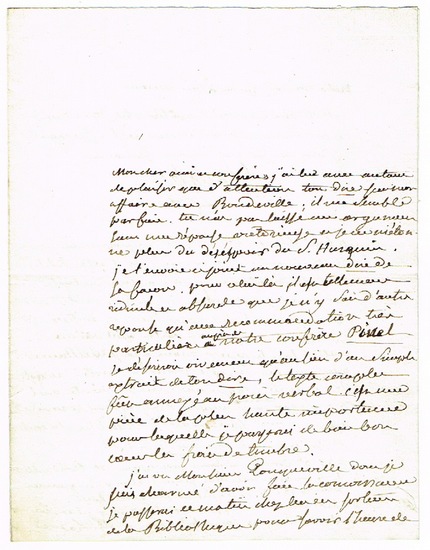 Mon cher ami et confrère, j'ai lu avec autant
de plaisir que d'attention ton dire sur mon
affaire avec Boudeville; il me semble
parfait. tu n'as pas laissé un argument
sans une réponse victorieuse et je ne m'étonne
plus du désespoir du S.
je t'envoie ci joint un nouveau dire de
sa façon. pour celui là il est tellement
ridicule et absurde que je n'y vois d'autre
réponse qu'une recommandation très
particulière auprès de notre confrère Pinel
je désirerois vivement qu'au lieu d'un simple
extrait de ton dire, le texte complet
fût annexé au procès verbal. c'est une
pièce de la plus haute importance
pour laquelle je payerai de bien bon
coeur les frais de timbre.
j'ai vu Monsieur Pouqueville dont je
suis charmé d'avoir fait la connoissance
je passerai ce matin chez lui en sortant
de la Bibliothèque pour savoir l'heure de